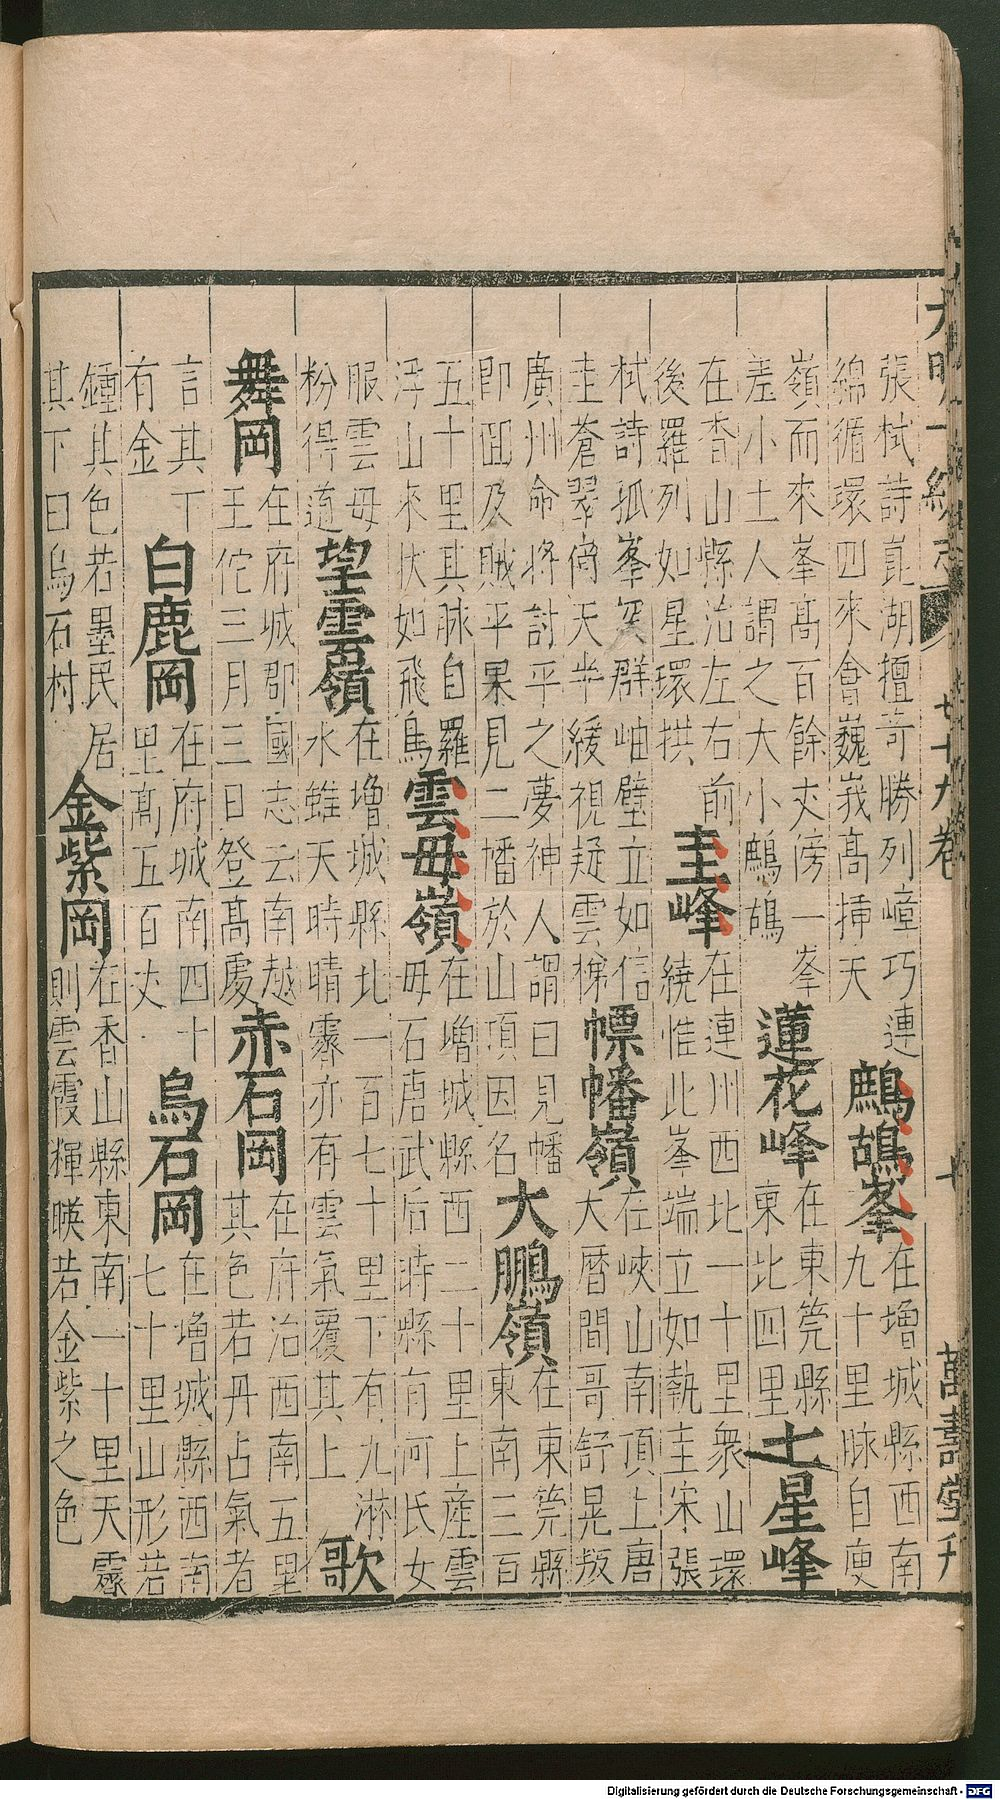 大明一統志 七十九卷 萬壽堂刋
張栻詩崑湖擅奇勝列嶂巧連
綿循環四來會巍峩髙揷天
鷓鴣峯
在增城縣西南
九十里脉自庾
嶺而來峯髙百餘丈傍一峯
差小土人謂之大小鷓鴣
蓮花峰
在東莞縣
東北四里
七星峰
在香山縣治左右前
後羅列如星環拱
圭峰
在連州西北一十里衆山環
繞惟此峯端立如執圭宋張
栻詩孤峯突群岫壁立如信
圭蒼翠倚天半緩視疑雲梯
幖幡嶺
在峽山南頂上唐
大曆間哥舒晃叛
廣州命將討平之夢神人謂曰見幡
即回及賊平果見二幡於山頂因名
大鵬嶺
在東莞縣
東南三百
五十里其脉自羅
浮山來狀如飛鳥
雲母嶺
在增城縣西二十里上產雲
母石唐武后時縣有何氏女
服雲母
粉得道
望雲嶺
在增城縣北一百七十里下有九淋
水雖天時晴霽亦有雲氣覆其上
歌
舞岡
在府城郡國志云南越
王佗三月三日登髙處
赤石岡
在府治西南五里
其色若丹占氣者
言其下
有金
白鹿岡
在府城南四十
里髙五百丈
烏石岡
在增城縣西南
七十里山形若
鍾其色若墨民居
其下曰烏石村
金紫岡
在香山縣東南一十里天霽
則雲霞輝暎若金紫之色
Digitalisierung gefördert durch die Deutsche Forschungsgemeinschaft - DFG